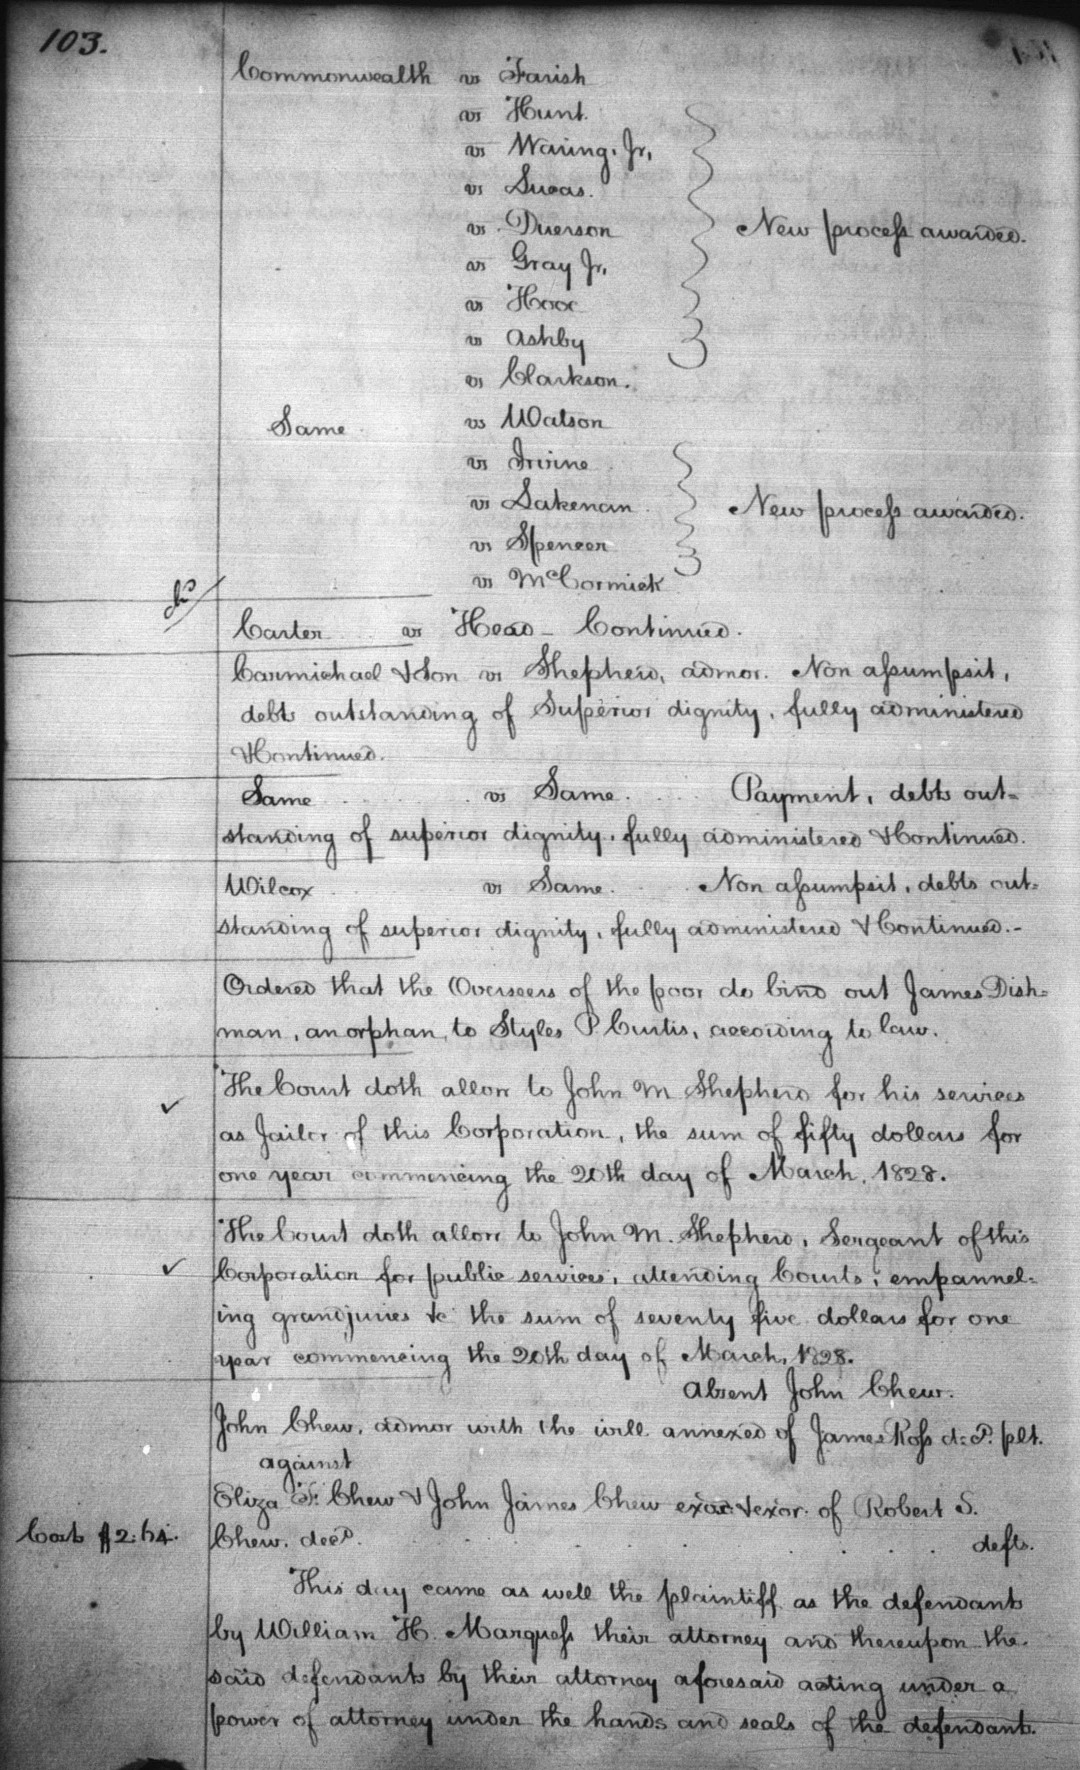 103.
Commonwealth vs Farish
vs Hunt.
vs Waring, Jr,
vs Lucas.
vs Duerson
New process awarded.
vs Gray Jr,
vs Hood
vs Ashby
vs Clarkson.
Same vs Watson
vs Irvine
vs Lakenan
New process awarded.
vs Spencer
vs McCormick
Carter vs Head - Continued.
Carmichael & Son vs Shepherd, admor. Non assumpsit,
debts outstanding of Superior dignity, fully administered
& Continued.
Same vs Same. Payment, debts out=
standing of superior dignity, fully administered & Continued.
Wilcox vs Same. Non assumpsit, debts out=
standing of superior dignity, fully administered & Continued.-
Ordered that the Overseers of the poor do bind out James Dish=
man, an orphan, to Styles P Curtis, according to law.
The Court doth allow to John M Shepherd for his services
as Jailor of this Corporation, the sum of fifty dollars for
one year commencing the 20th day of March, 1828.
The Court doth allow to John M. Shepherd, Sergeant of this
Corporation for public services, attending Courts, empannel=
ing grandjuries &c the sum of seventy five dollars for one
year commencing the 20th day of March, 1828.
Absent John Chew.
John Chew, admor with the will annexed of James Ross dec'd. plt.
against
Eliza F. Chew & John James Chew exox & exor. of Robert S.
Costs $2.64. Chew. decd. defts.
This day came as well the plaintiff as the defendants
by William H. Marquess their attorney and thereupon the
said defendants by their attorney aforesaid acting under a
power of attorney under the hands and seals of the defendants.